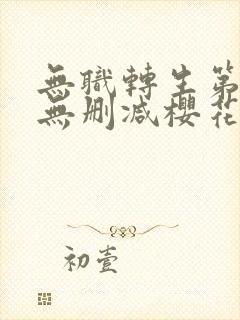 無職轉生第
無刪減櫻花
初壹